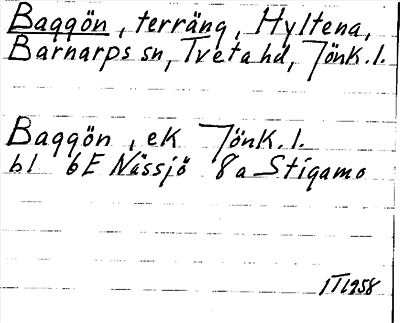 Baggön, terräng, Hyltena,
Barnarps sn, Tveta hd, Jönk. l.
Baggön, ek Jönk. l.
bl 6E Nässjö 8a Stigamo
1958